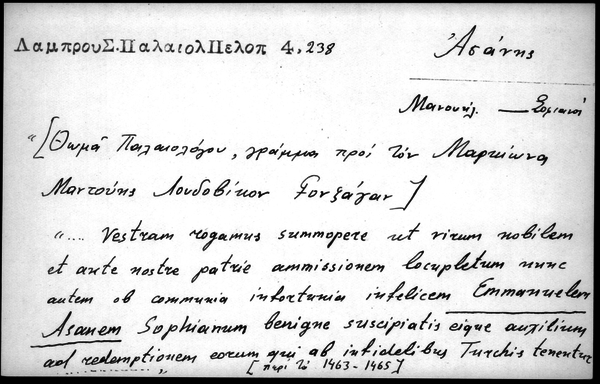 ΛαμπρουΣ.ΠαλαιολΠελοπ 4,238
Ἀσάνης
Μανουήλ — Σοφιανός
"[Θωμᾶ Παλαιολόγου, γράμμα πρὸς τὸν Μαρκίωνα
Μαντούης Λουδοβίκον Γονζάγαν]
".... Vestram rogamus summopere ut virum nobilem
et ante nostre patrie ammissionem locupletum nunc
autem ob communia infortunia infelicem Emmanuelem
Asanem Sophianum benigne suscipiatis eique auxilium
ad redemptionem eorum qui ab infidelibus Turchis tenentur
......"
[περὶ τὸ 1463-1465]